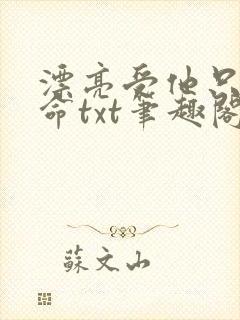 漂亮受他只
命txt笔趣阁
蘇文山